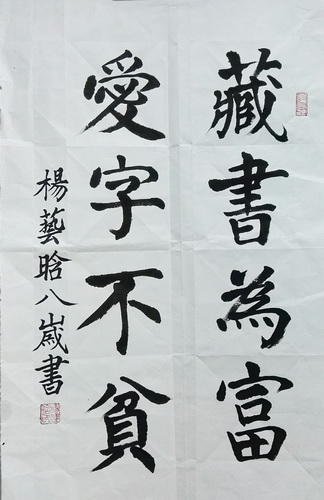 藏書為富
愛字不貧
楊藝晗八嵗書